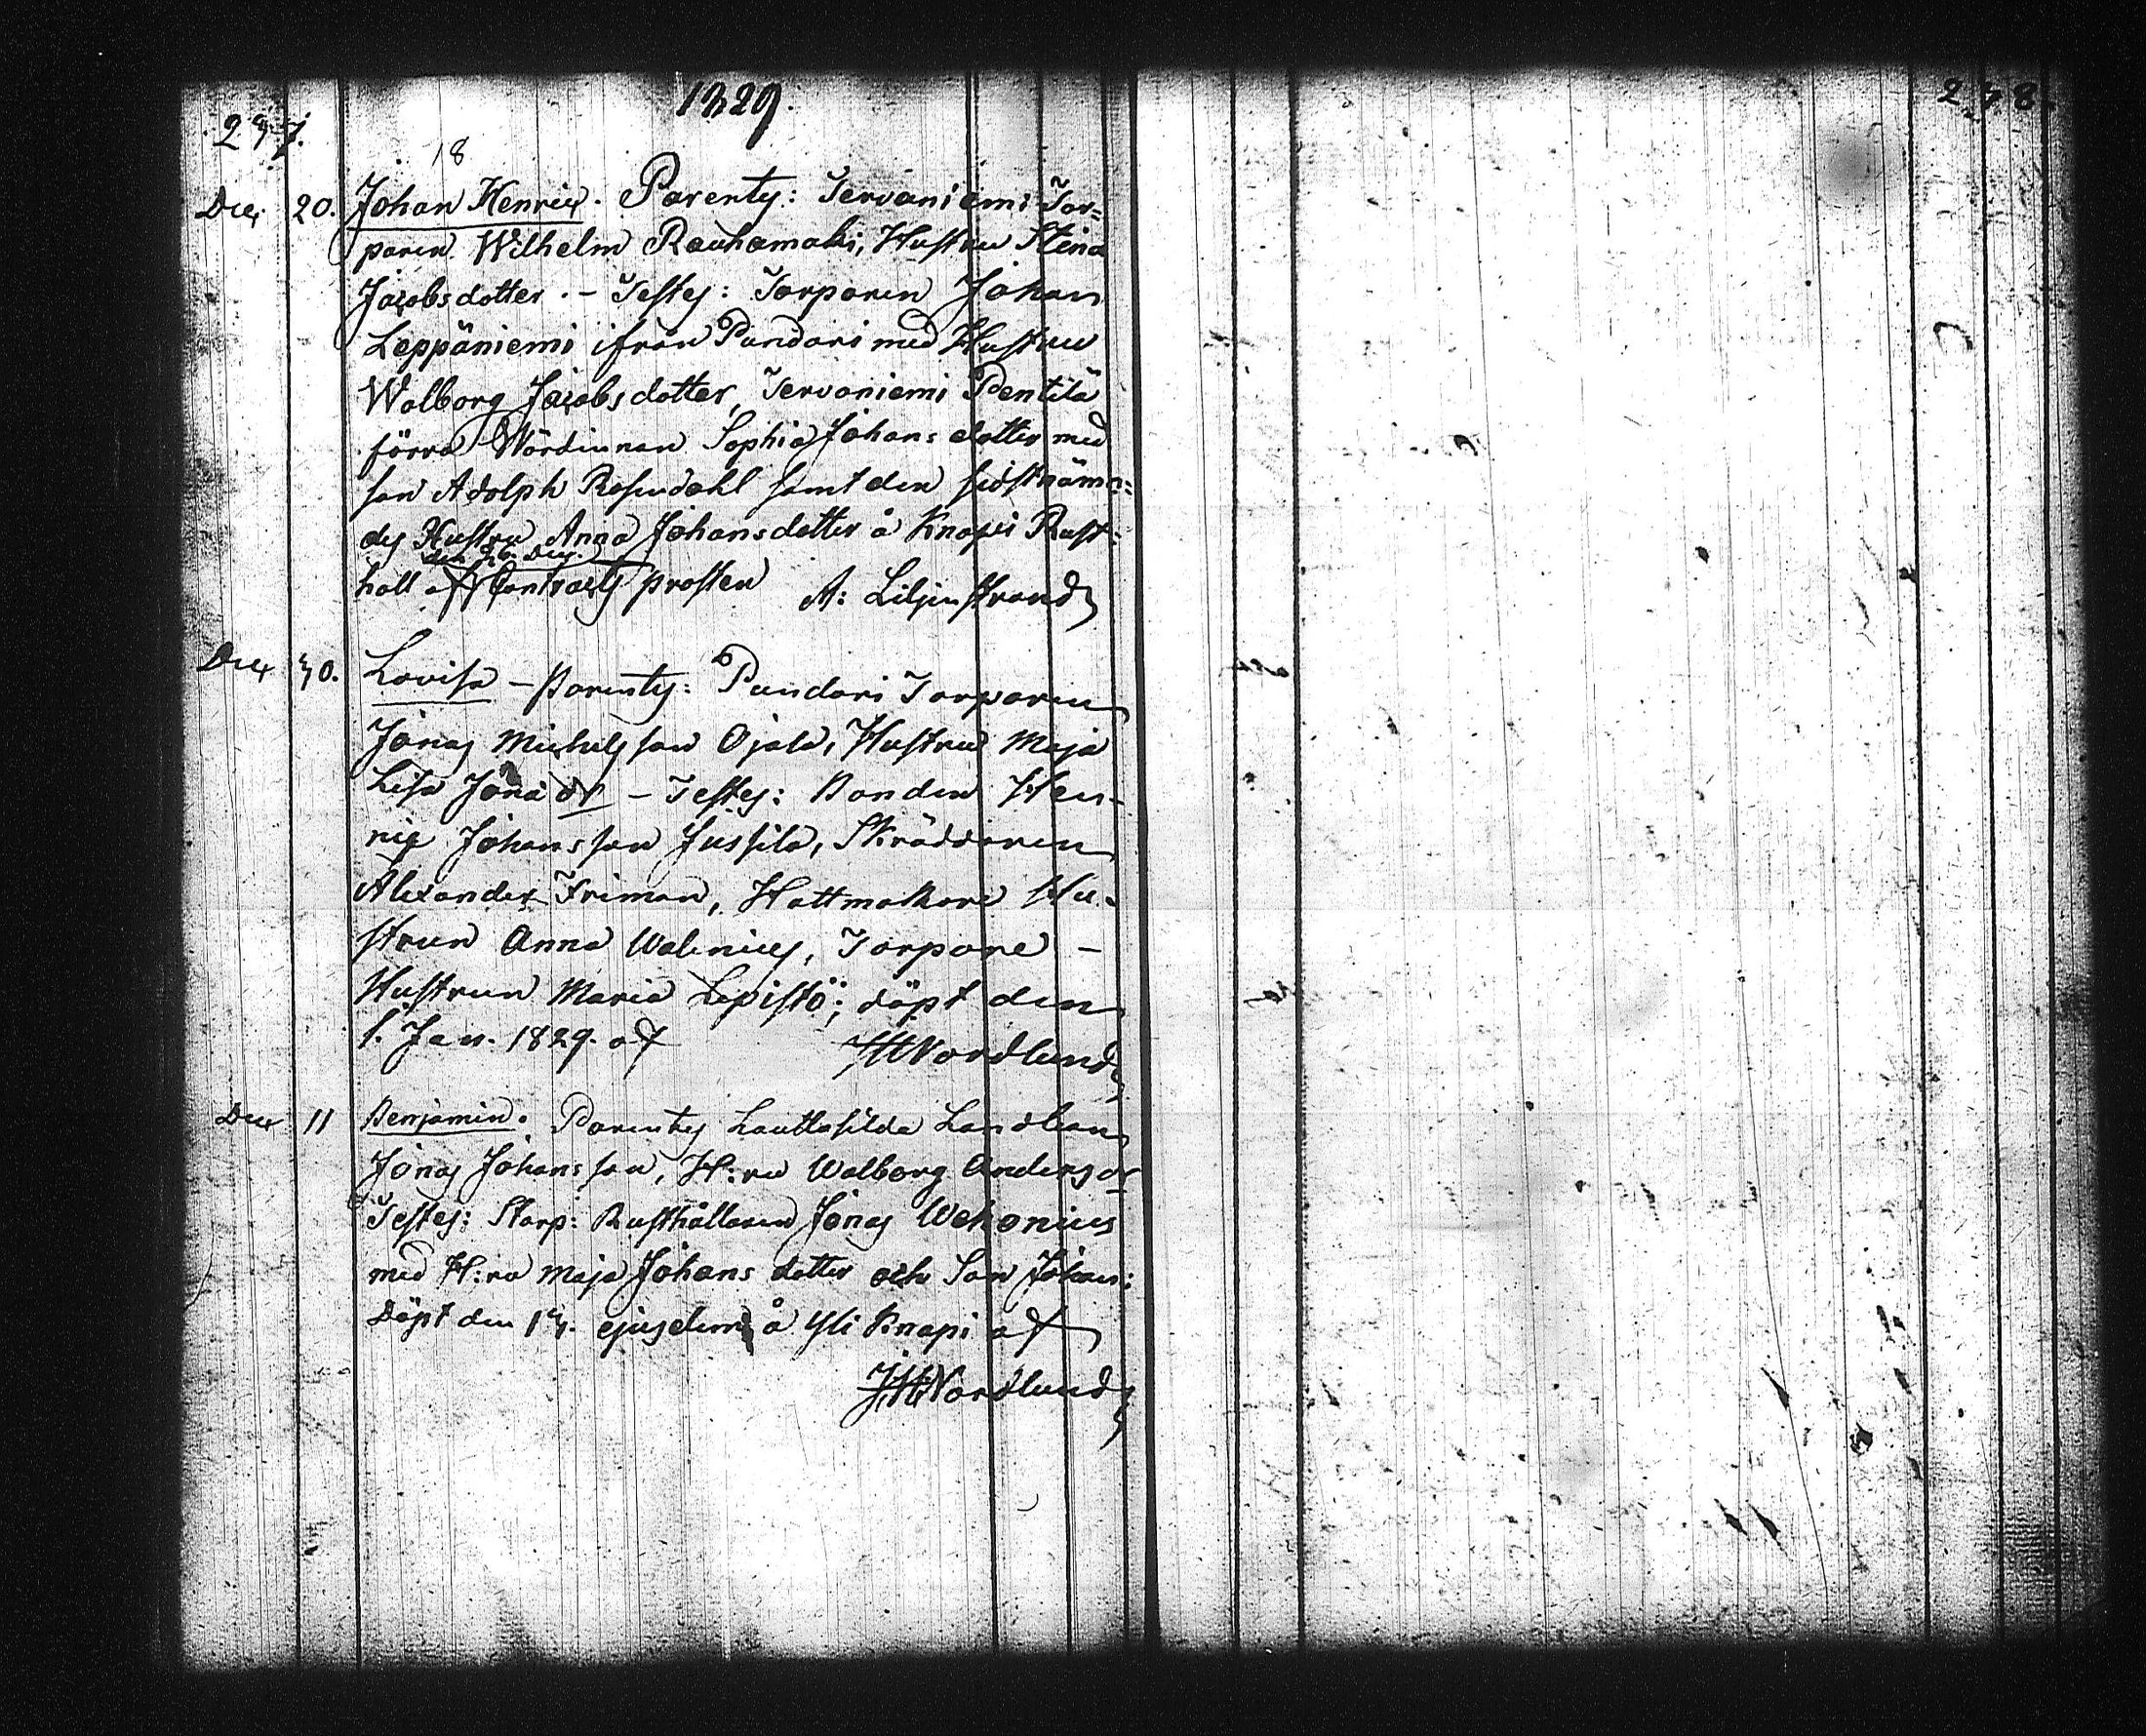 1829.
277.
278.
18
Dec. 20. Johan Henric. Parentes: Tervaniemi Tor=
paren Wilhelm Rauhamaki, Hustru Stina
Jacobsdotter. – Testes: Torparen Johan
Leppäniemi ifrån Pundari med Hustru
Walborg Jacobsdotter, Tervaniemi Pentilä
förra Wärdinnan Sophia Johansdotter med
son Adolph Rosendahl samt den sidstnämn=
des Hustru Anna Johansdotter å Knapi Rust=
den 26. Dec.
håll af Contracts prosten A: Liljenstrand
Dec 30. Lovisa – Parentes: Pundari Torparen
Jonas Michelsson Ojala, Hustru Maja
Lisa Jona dr – Testes: Bonden Hen-
ric Johansson Jussila, Skräddaren
Alexander Friman, Hattmakare Hu-
strun Anna Walenius, Torpare –
Hustrun Maria Lepistö; döpt den
1. Jan. 1829. af JHNordlund
Dec 11 Benjamin. Parentes Lauttasilda Landbon
Jonas Johansson, H:ru Walborg Anders dr
Testes: Starp: Rusthållaren Jonas Wehonius
med H:ru Maja Johans dotter och Son Johan:
Döpt den 13. ejusdem å Yli Knapi af
JHNordlund